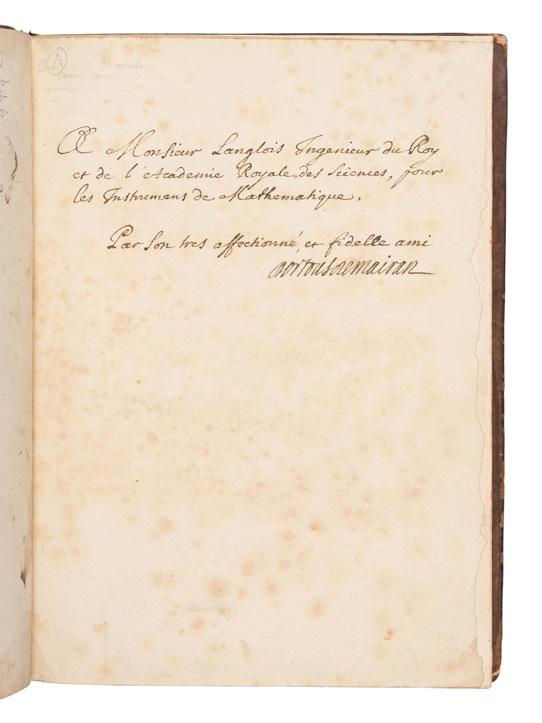 A
A Monsieur Langlois Ingenieur du Roy
et de l'Academie Royale des Sciences, pour
les Instrumens de Mathematique.
Par son tres affectionné, et fidelle ami
Dortous de Mairan